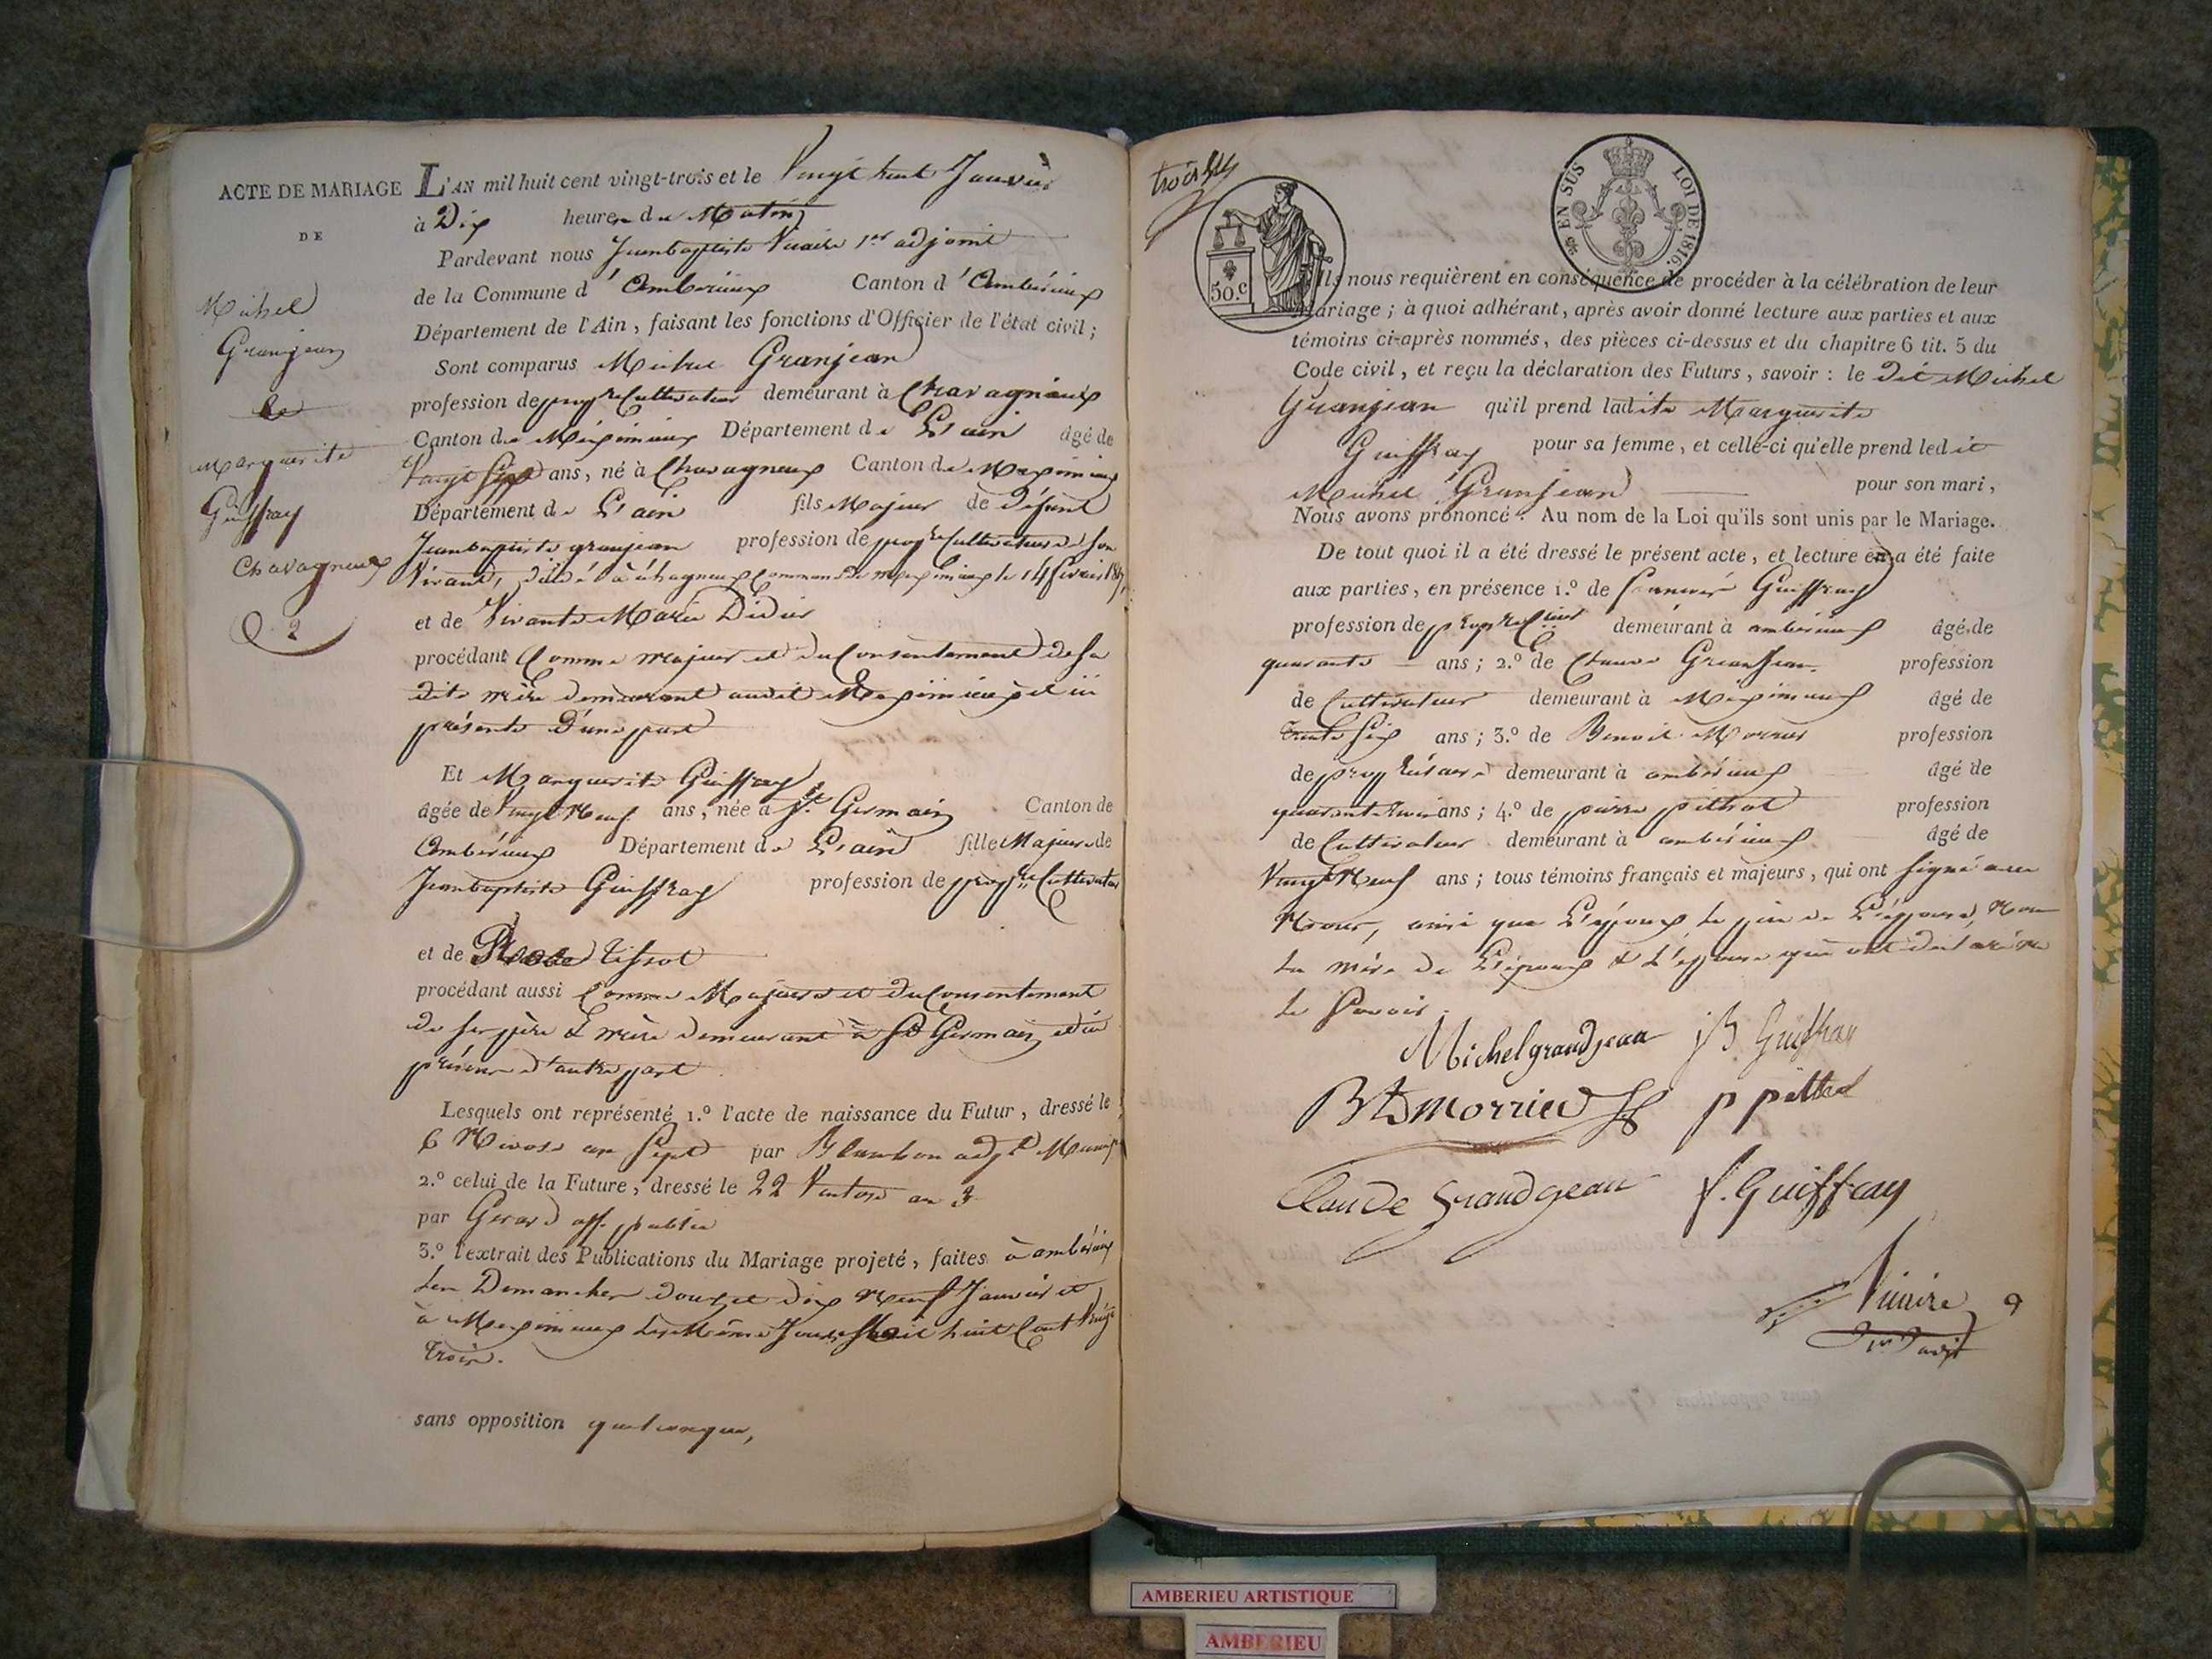 ACTE DE MARIAGE
DE
Michel
Granjean
et
Marguerite
Guiffray
Chavagneux
2
L'AN mil huit cent vingt-trois et le Vingt huit Janvier
à Dix heures du Matin
Pardevant nous Jeanbaptiste Vicaire 1er adjoint
de la Commune d'Ambérieux Canton d'Ambérieux
Département de l'Ain, faisant les fonctions d'Officier de l'état civil;
Sont comparus Michel Granjean
profession de propre Cultivateur demeurant à Chavagnieux
Canton de Meximieux Département de L'ain âgé de
Vingt Sept ans, né à Chavagneux Canton de Meximieux
Département de L'ain fils Majeur de défunt
Jeanbaptiste granjean profession de propre Cultivateur de son
Vivant, décédé à Commune de meximieux le 14 fevrier
et de Vivante Marie Didier
procédant Comme majeur et du Consentement de sa
dite mère demeurant audit Meximieux et ici
présente D'une part
Et Marguerite Guiffray
âgée de Vingt Neuf ans, née à St. Germain Canton de
Ambérieux Département de L'ain fille Majeure de
Jeanbaptiste Guiffray profession de propre Cultivateur
et de Tissot
procédant aussi Comme Majeure et du Consentement
de ses père & mère demeurant à St Germain et ici
présens d'autre part
Lesquels ont représenté 1.º l'acte de naissance du Futur, dressé le
6 Nivose an Sept par adjt
2.º celui de la Future, dressé le 22 Ventose an 3
par Gerard off. public
3.º l'extrait des Publications du Mariage projeté, faites à ambérieux
les Dimanches douze et dix Neuf Janvier et
à Meximieux les Même Jours Mil huit Cent Vingt
Trois.
sans opposition quelconque,
trois
50.c
EN SUS LOI DE 1816.
Ils nous requièrent en conséquence de procéder à la célébration de leur
mariage; à quoi adhérant, après avoir donné lecture aux parties et aux
témoins ci-après nommés, des pièces ci-dessus et du chapitre 6 tit. 5 du
Code civil, et reçu la déclaration des Futurs, savoir: le dit Michel
Granjean qu'il prend ladite Marguerite
Guiffray pour sa femme, et celle-ci qu'elle prend ledit
Michel Granjean pour son mari,
Nous avons prononcé: Au nom de la Loi qu'ils sont unis par le Mariage.
De tout quoi il a été dressé le présent acte, et lecture en a été faite
aux parties, en présence 1.º de Guiffray
profession de demeurant à ambérieux âgé de
quarante ans; 2.º de Claude Granjean profession
de Cultivateur demeurant à Meximieux âgé de
trente Six ans; 3.º de Benoit profession
de propriétaire demeurant à ambérieux âgé de
ans; 4.º de pierre profession
de Cultivateur demeurant à ambérieux âgé de
Vingt Neuf ans; tous témoins français et majeurs, qui ont Signé avec
Nous, ainsi que L'époux le père de L'épouse, Non
la mère de L'époux & L'épouse qui ont déclaré ne
le Savoir.
Michel grandjean jB Guiffray
Bt morrier p pittiod
Claude grandgean f. Guiffray
Vicaire
1er adjt
AMBERIEU ARTISTIQUE
AMBERIEU